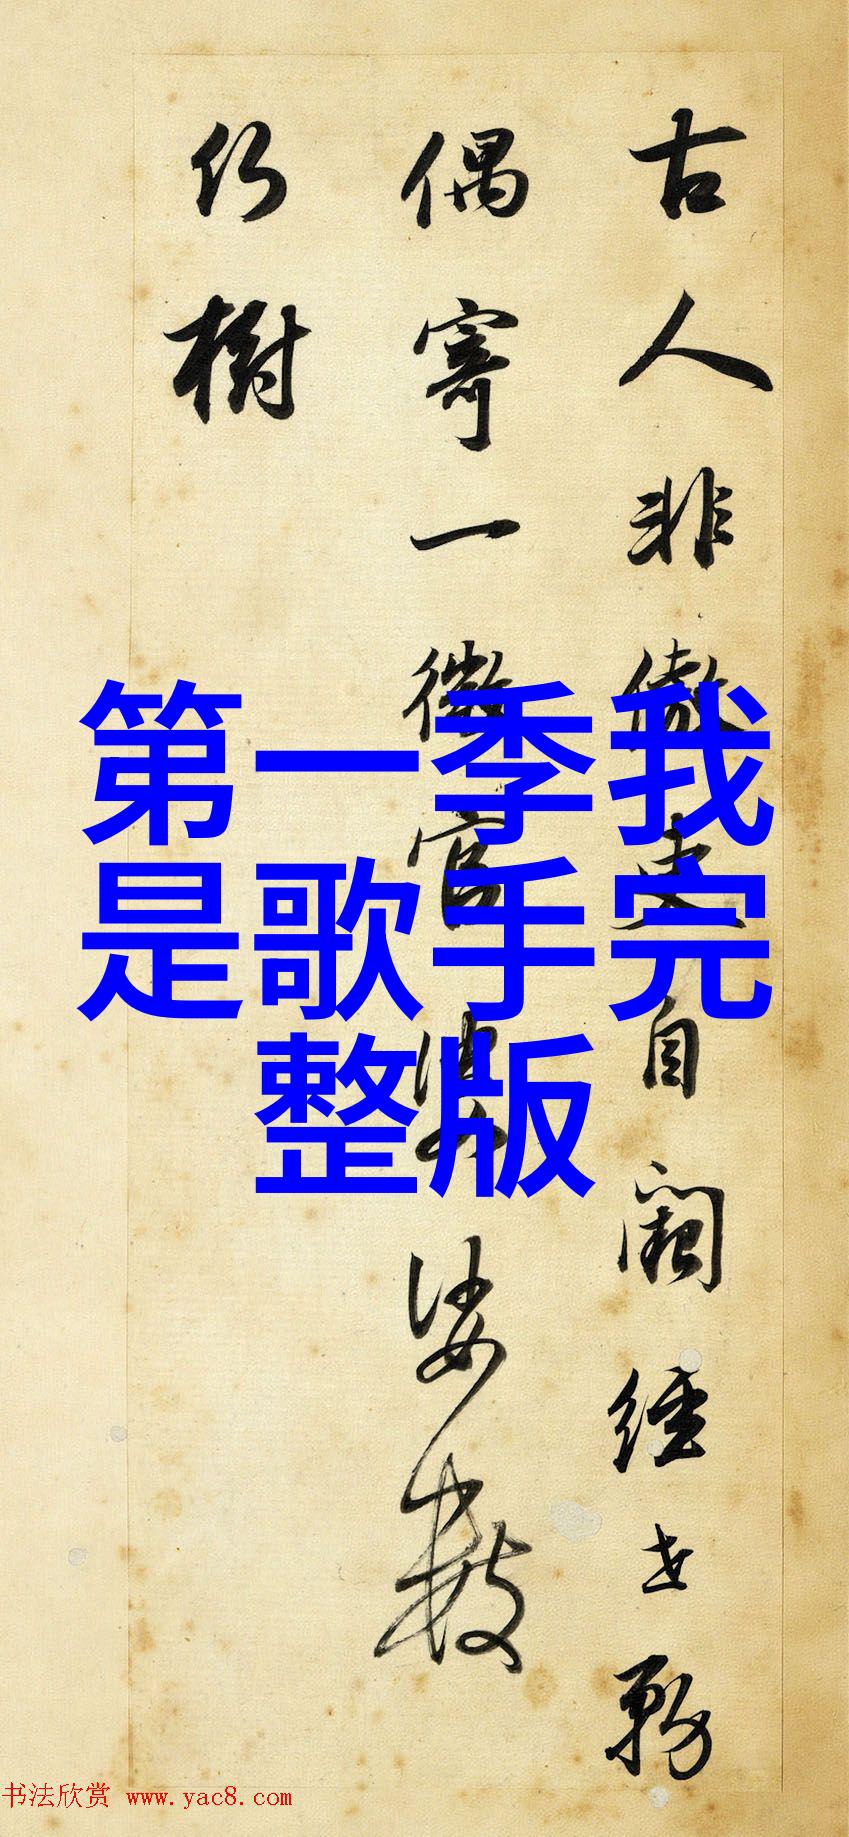 古人非傲吏自闕經世務
偶寄一微官婆娑數
仍樹
第一季我
是歌手完
整版
书法欣赏 www.yac8.com